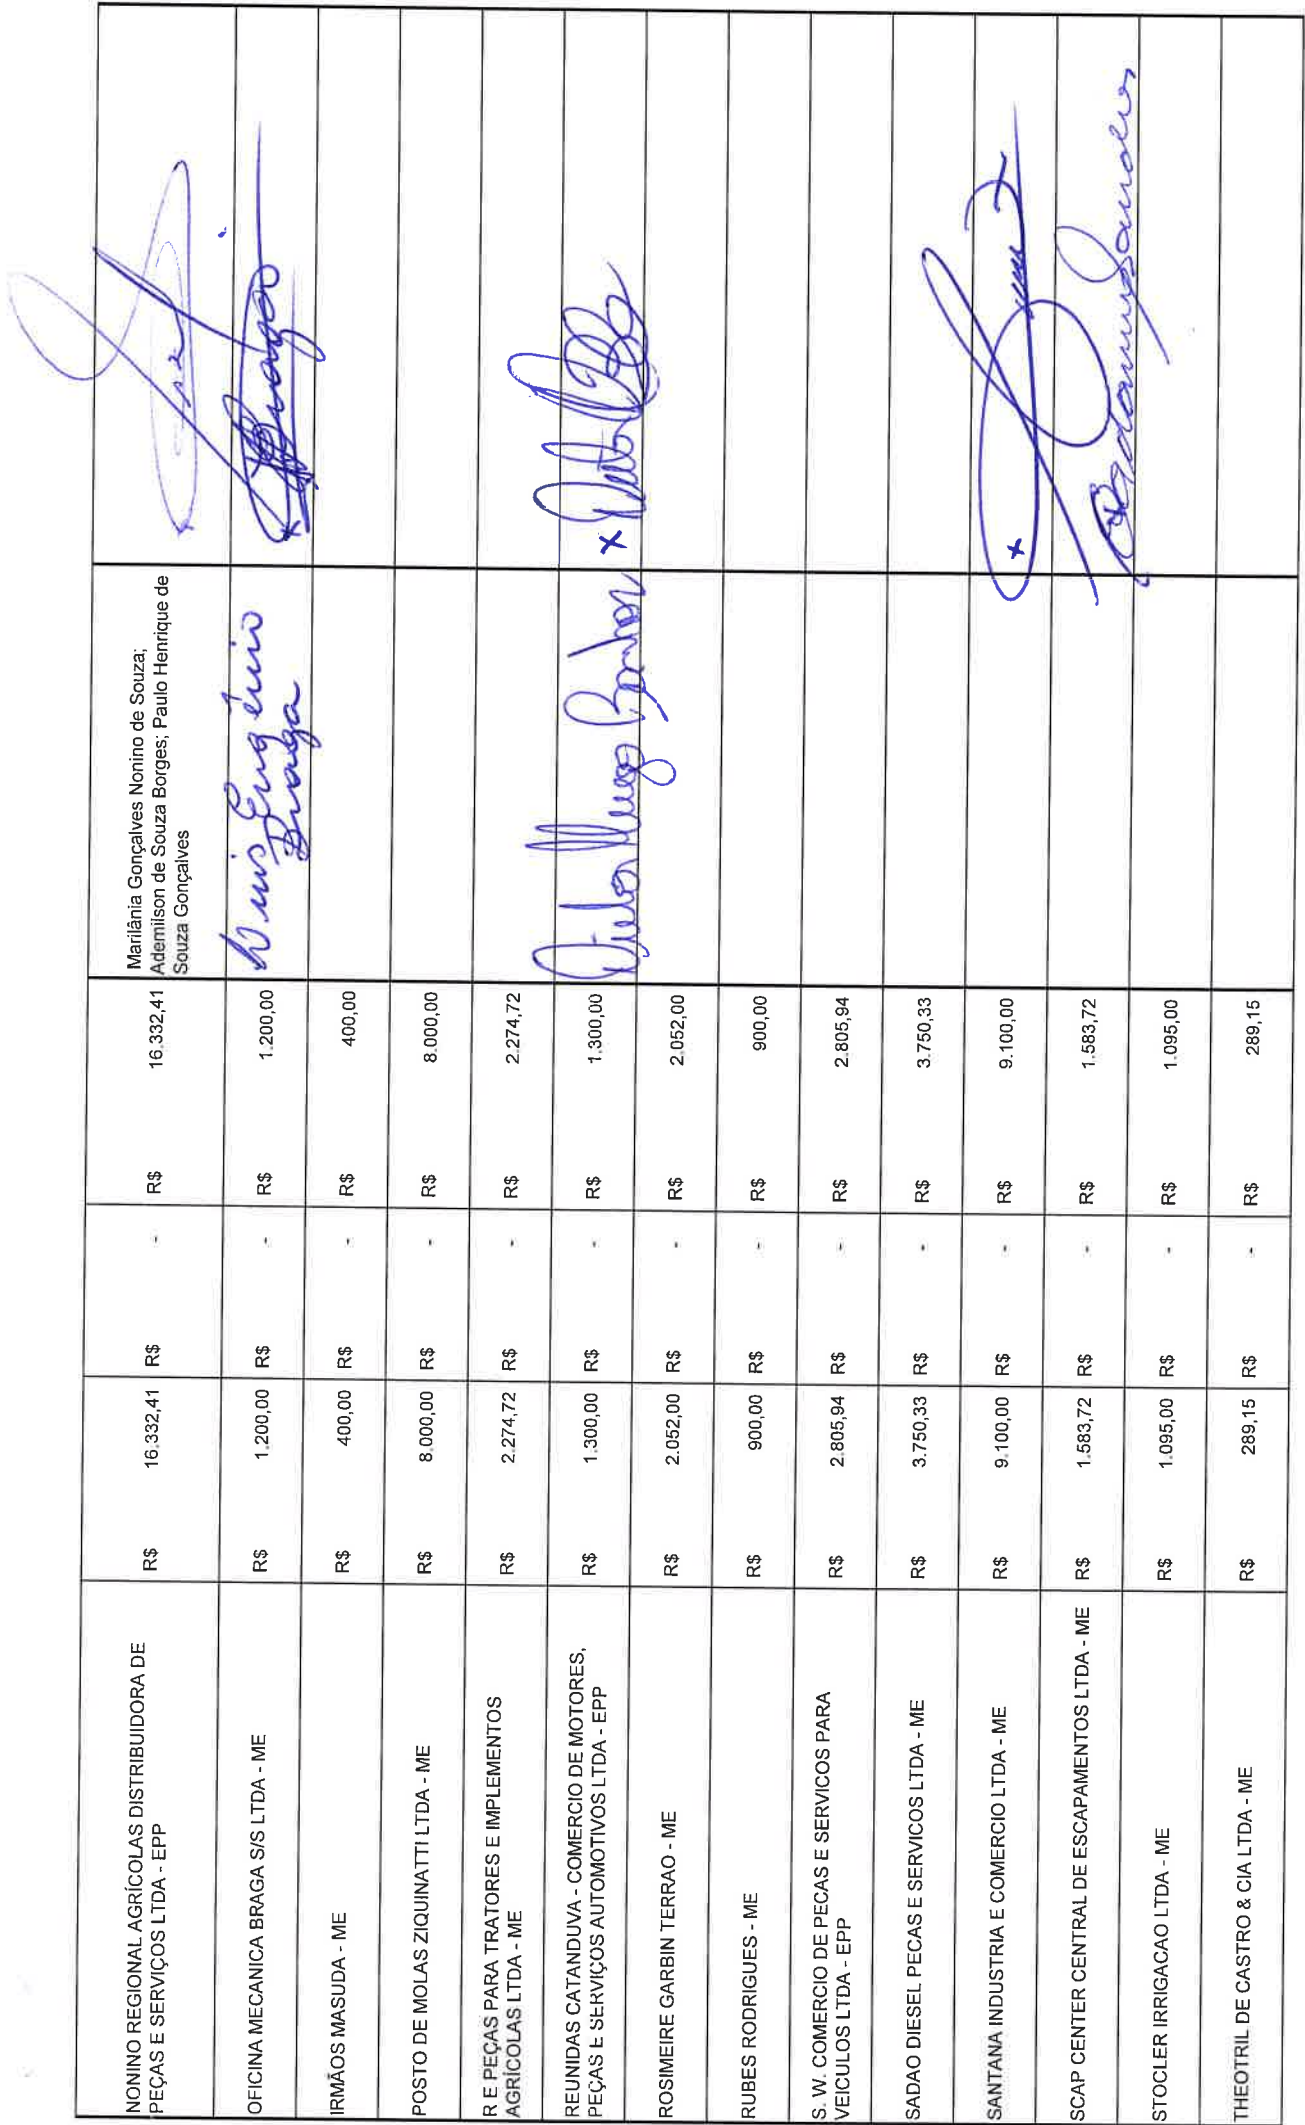 NONINO REGIONAL AGRÍCOLAS DISTRIBUIDORA DE
PEÇAS E SERVIÇOS LTDA - EPP
R$ 16.332,41 R$ - R$ 16.332,41
Marilânia Gonçalves Nonino de Souza;
Ademilson de Souza Borges; Paulo Henrique de
Souza Gonçalves
OFICINA MECANICA BRAGA S/S LTDA - ME R$ 1.200,00 R$ - R$ 1.200,00
Luis Eugênio
Braga
x
IRMÃOS MASUDA - ME R$ 400,00 R$ - R$ 400,00
POSTO DE MOLAS ZIQUINATTI LTDA - ME R$ 8.000,00 R$ - R$ 8.000,00
R E PEÇAS PARA TRATORES E IMPLEMENTOS
AGRÍCOLAS LTDA - ME
R$ 2.274,72 R$ - R$ 2.274,72
REUNIDAS CATANDUVA - COMERCIO DE MOTORES,
PEÇAS E SERVIÇOS AUTOMOTIVOS LTDA - EPP
R$ 1.300,00 R$ - R$ 1.300,00
x
ROSIMEIRE GARBIN TERRAO - ME R$ 2.052,00 R$ - R$ 2.052,00
RUBES RODRIGUES - ME R$ 900,00 R$ - R$ 900,00
S. W. COMERCIO DE PECAS E SERVICOS PARA
VEICULOS LTDA - EPP
R$ 2.805,94 R$ - R$ 2.805,94
SADAO DIESEL PECAS E SERVICOS LTDA - ME R$ 3.750,33 R$ - R$ 3.750,33
SANTANA INDUSTRIA E COMERCIO LTDA - ME R$ 9.100,00 R$ - R$ 9.100,00
x
SCAP CENTER CENTRAL DE ESCAPAMENTOS LTDA - ME R$ 1.583,72 R$ - R$ 1.583,72
STOCLER IRRIGACAO LTDA - ME R$ 1.095,00 R$ - R$ 1.095,00
THEOTRIL DE CASTRO & CIA LTDA - ME R$ 289,15 R$ - R$ 289,15